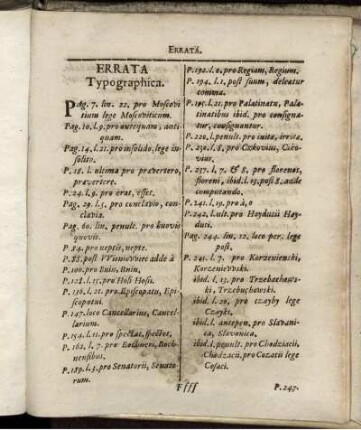 ERRATA.
ERRATA
Typographica.
PAg. 7. lin. 22. pro Moscovi
tium lege Moscoviticum.
Pag. 10. l. 9. pro antequam, anti
quam.
Pag. 14. l. 21. pro insolido, lege in
solito.
P. 18. l. ultima pro prævertero,
prævertere.
P. 24. l. 9. pro erat, esset.
Pag. 29. l. 5. pro conclavio, con
clavia.
Pag. 60. lin. penult. pro
quovis.
P. 84. pro neptis, nepte.
P. 88. post adde à
P. 100. pro Buin, Bnin,
P. 128. l. 15. pro Hosi Hosii.
P. 136. l. 21. pro Episcopatu, Epi-
scopotui.
P. 147. loco Cancellarius, Cancel-
larium.
P. 154. l. 11. pro spectat, spectet,
P. 162. l. 7. pro Boch-
nensibus.
P. 189. l. 3. pro Senatorii, Senato-
rum.
P. 192. l. 2. pro Regiam, Regium.
P. 194. l. 1. post suum, deleatur
comma.
P. 195. l. 21. pro Palatinatu, Pala-
tinatibus ibid. pro consigna-
tur, consignantur.
P. 220. l. penult. pro invita, irrita.
P. 232. l. 8. pro Czkovius, Cico-
vius.
P. 237. l. 7. & 8. pro florenos,
floreni, ibid. l. 13. post 8. adde
computando.
P. 241. l. 19. pro à, o
P. 242. l. ult. pro Haydusii Hay-
duti.
Pag. 244. lin. 12. loco per, lege
post.
P. 245. l. 7. pro Korzenienski,
Korzeniewski.
ibid. l. 13. pro Trzebuchows-
ti, Trzebuchowski.
ibid. l. 20. pro czayby lege
Czayki.
ibid. l. antepen. pro Slavani-
ca, Slavonica,
ibid. l. penult. pro Chodziacii,
Chodzacii, pro Cozatii lege
Cosaci.
Ffff
P. 247.